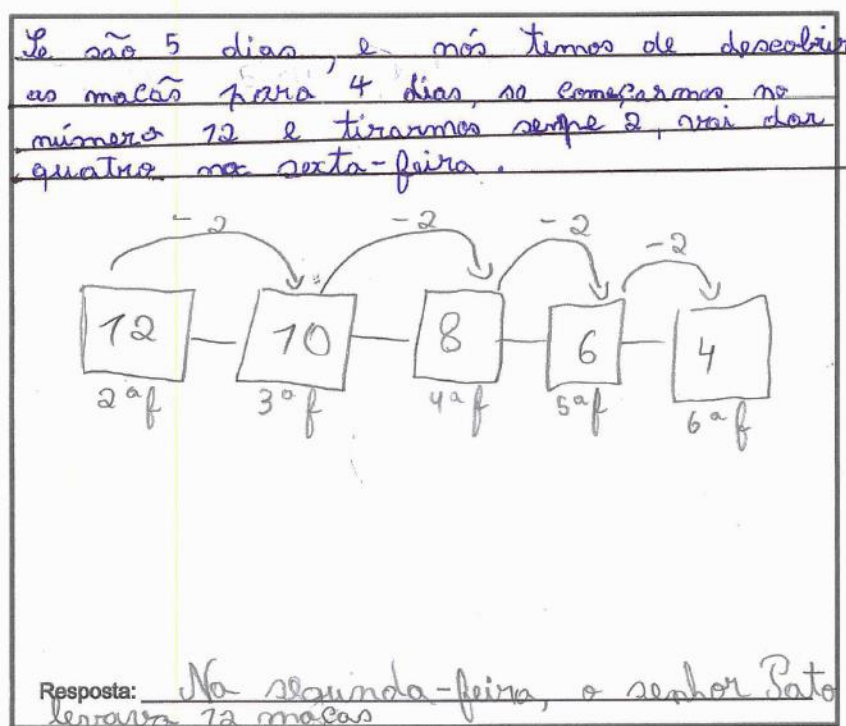 Se são 5 dias, e nós temos de descobrir
as maçãs para 4 dias, se começarmos no
número 12 e tirarmos sempe 2, vai dar
quatro na sexta-feira.
-2 -2 -2 -2
12 10 8 6 4
2ªf 3ªf 4ªf 5ªf 6ªf
Resposta: Na segunda-feira, o senhor Pato
levava 12 maças